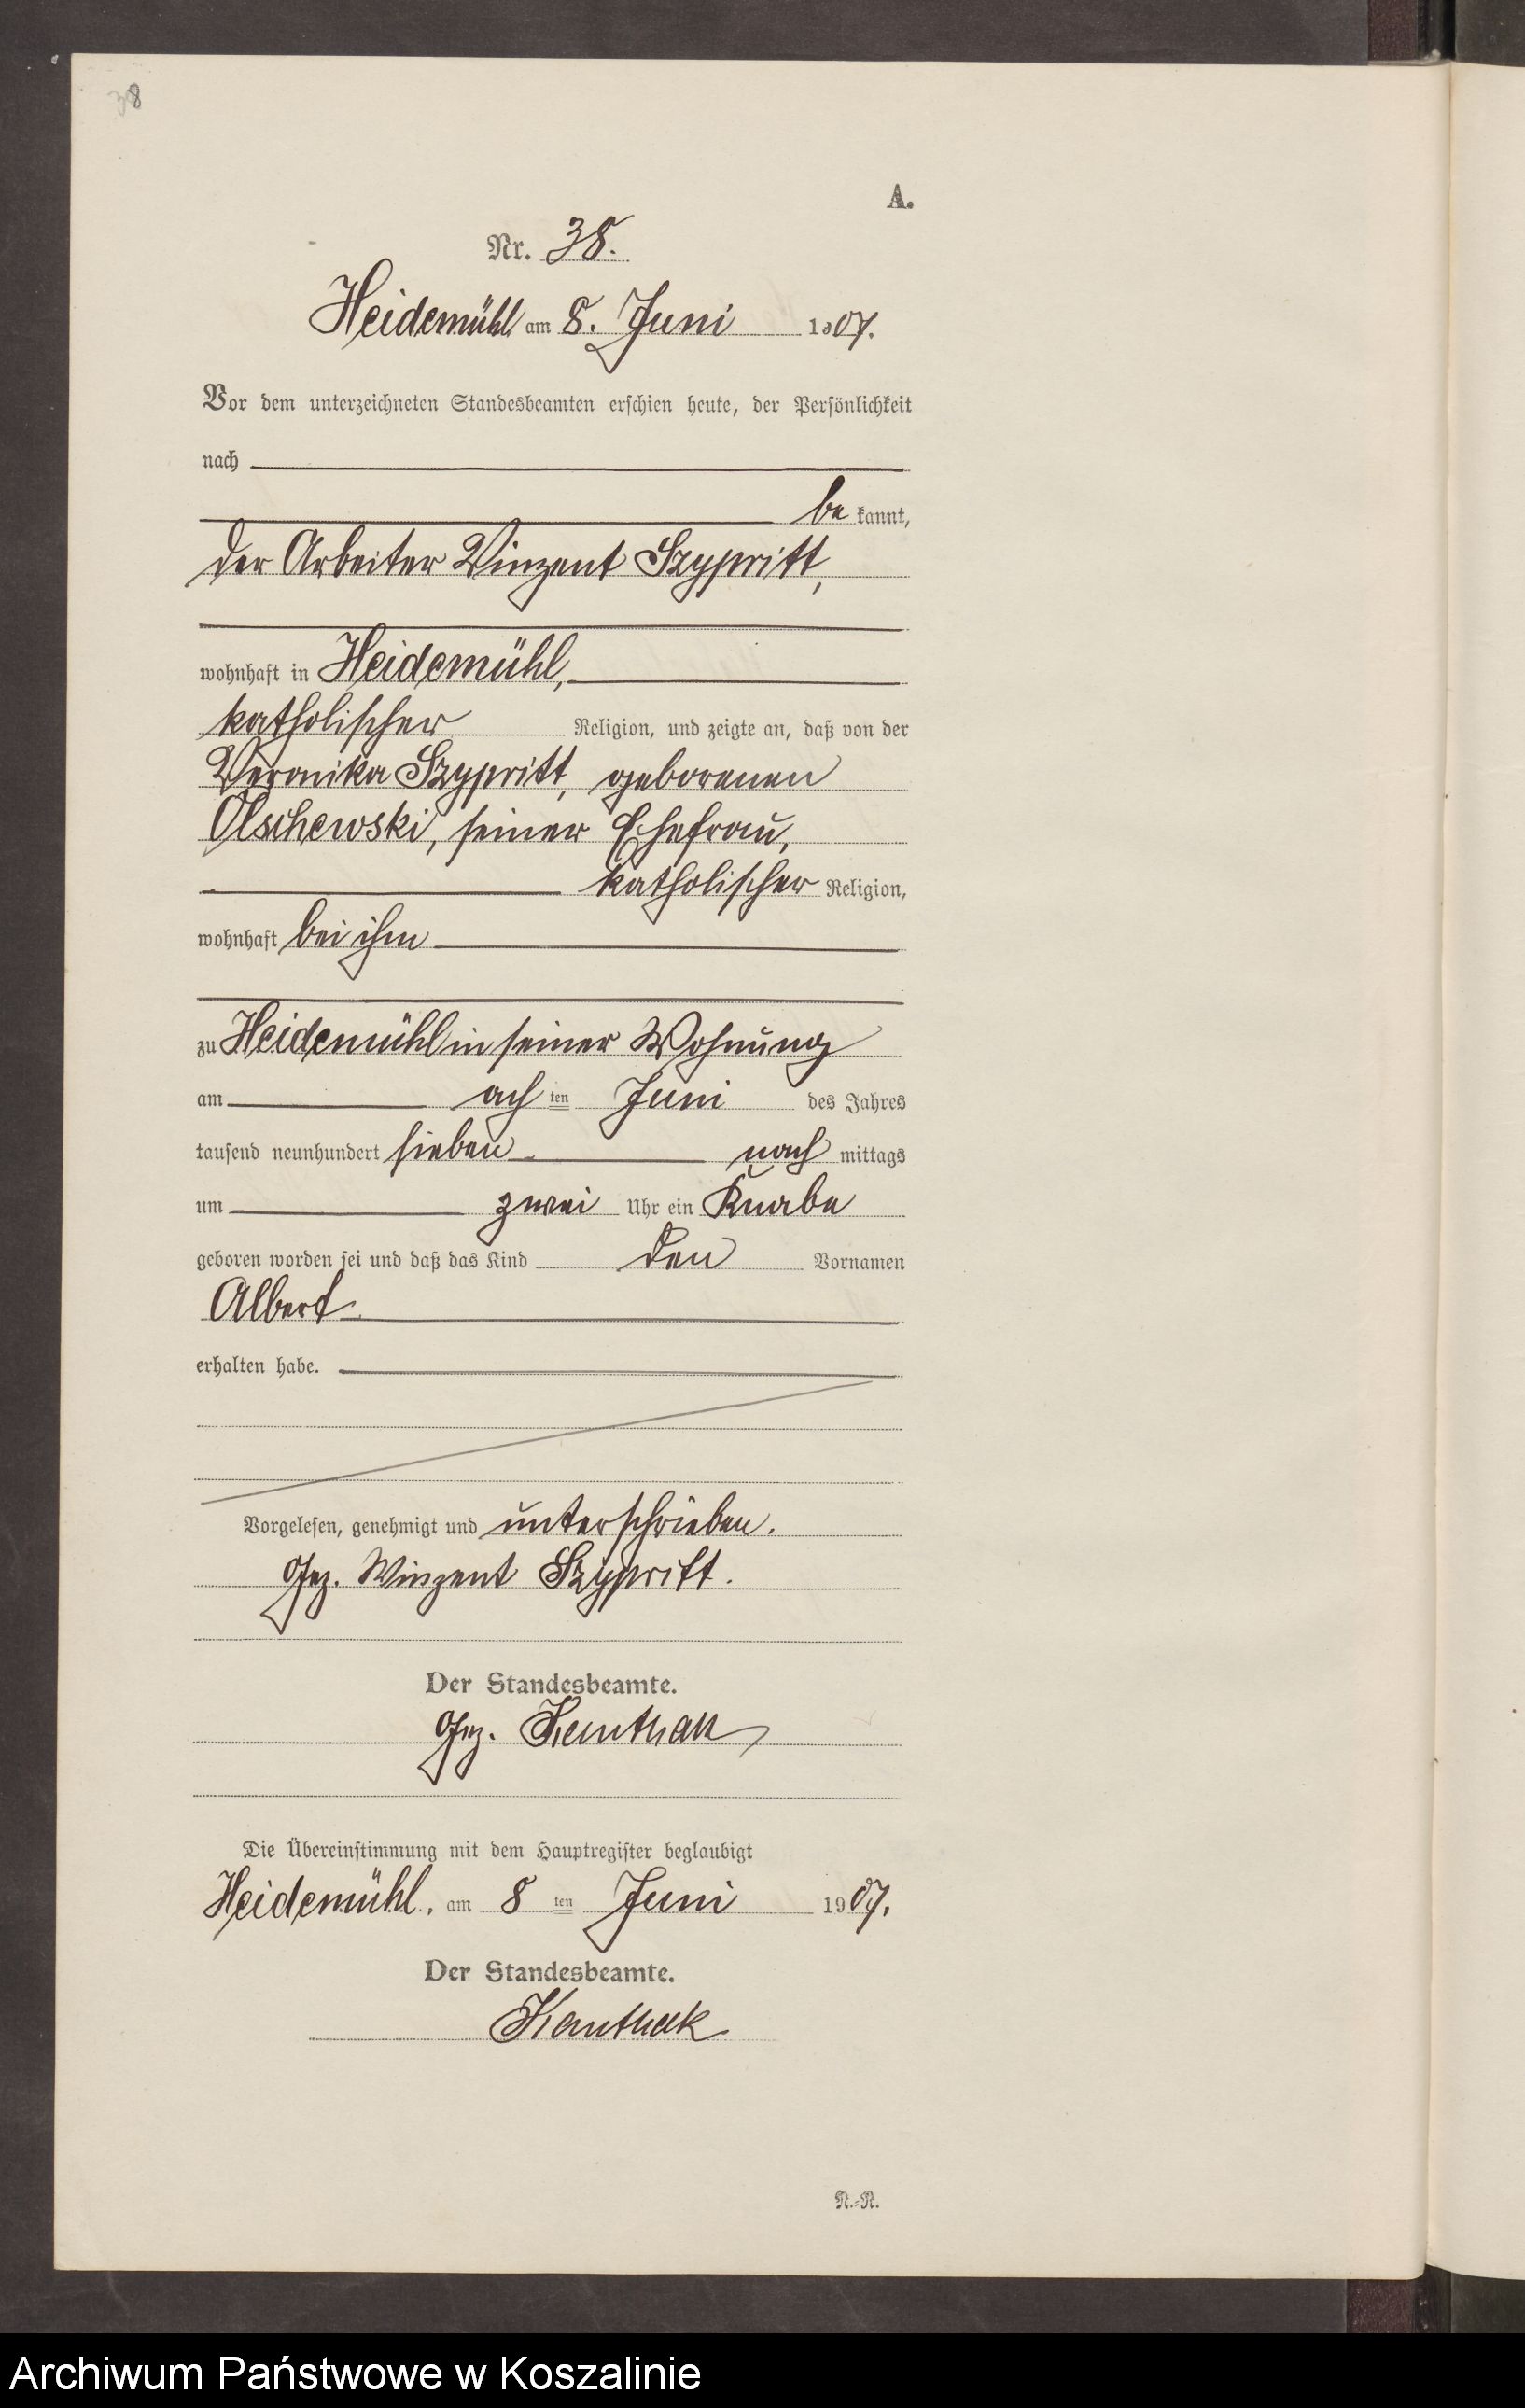 38
A.
Nr. 38.
Heidemühl am 8. Juni 1907.
Vor dem unterzeichneten Standesbeamten erschien heute, der Persönlichkeit
nach
be kannt,
der Arbeiter Vinzent Szypritt,
wohnhaft in Heidemühl,
katholischer Religion, und zeigte an, daß von der
Veronika Szypritt, geborenen
Olschewski, seiner Ehefrau,
katholischer Religion,
wohnhaft bei ihm
zu Heidemühl in seiner Wohnung
am ach ten Juni des Jahres
tausend neunhundert sieben nach mittags
um zwei Uhr ein Knabe
geboren worden sei und daß das Kind den Vornamen
Albert
erhalten habe.
Vorgelesen, genehmigt und unterschrieben.
Gez. Winzent Szypritt.
Der Standesbeamte.
Gez.
Die Übereinstimmung mit dem Hauptregister beglaubigt
Heidemühl, am 8 ten Juni 1907.
Der Standesbeamte.
N.-R.
Archiwum Państwowe w Koszalinie